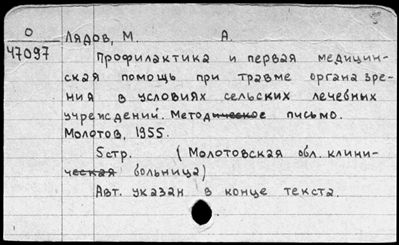 О
47097
Лядов, М. А.
Профилактика и первая медицин-
ская помощь при травме органа зре-
ния в условиях сельских лечебных
учреждений. Методическое письмо.
Молотов, 1955.
5стр. (Молотовская обл. клини-
ческая больница)
Авт. указан в конце текста.